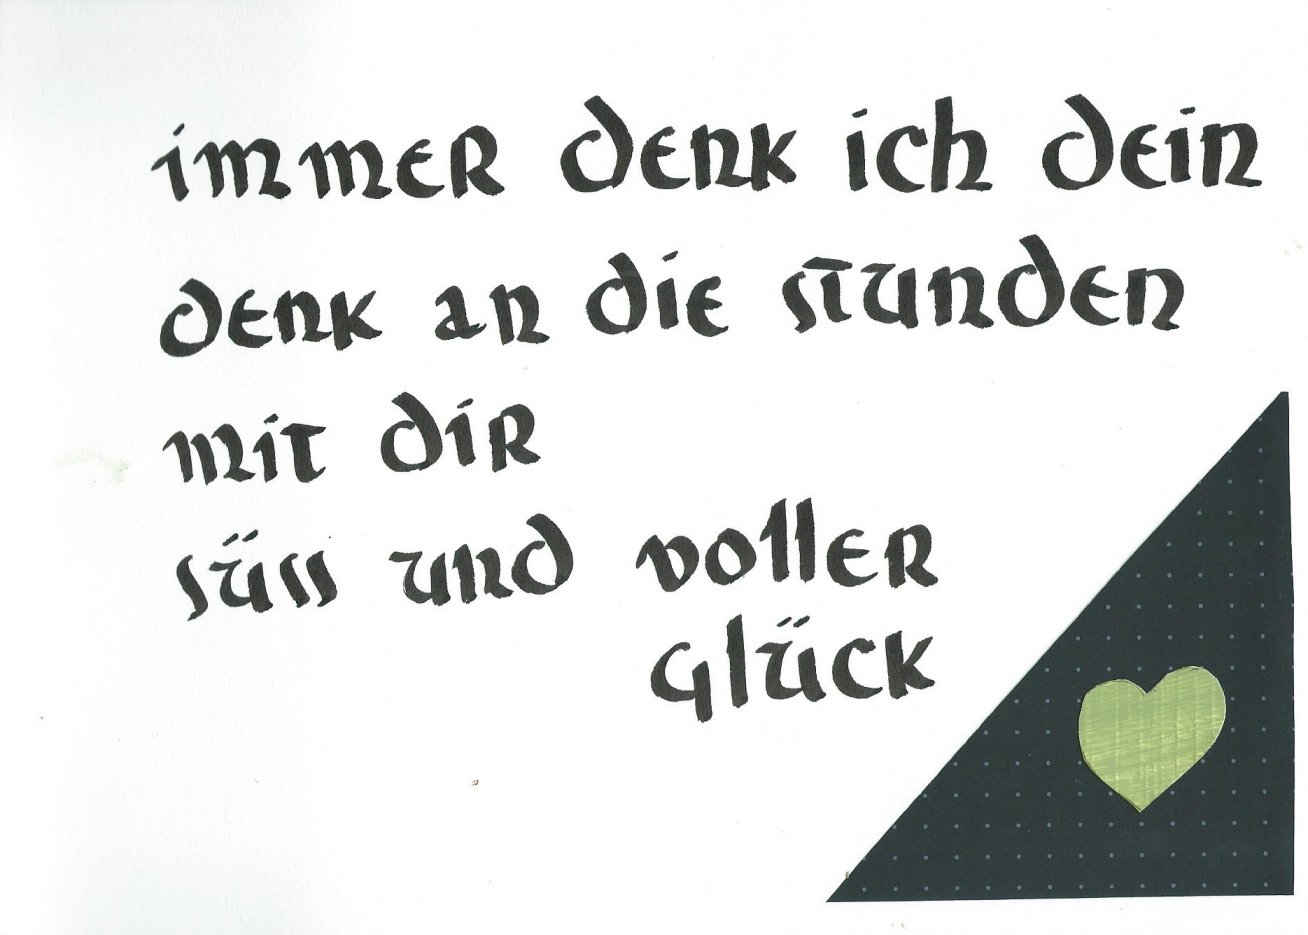 immer denk ich dein
denk an die stunden
mit dir
süss und voller
glück